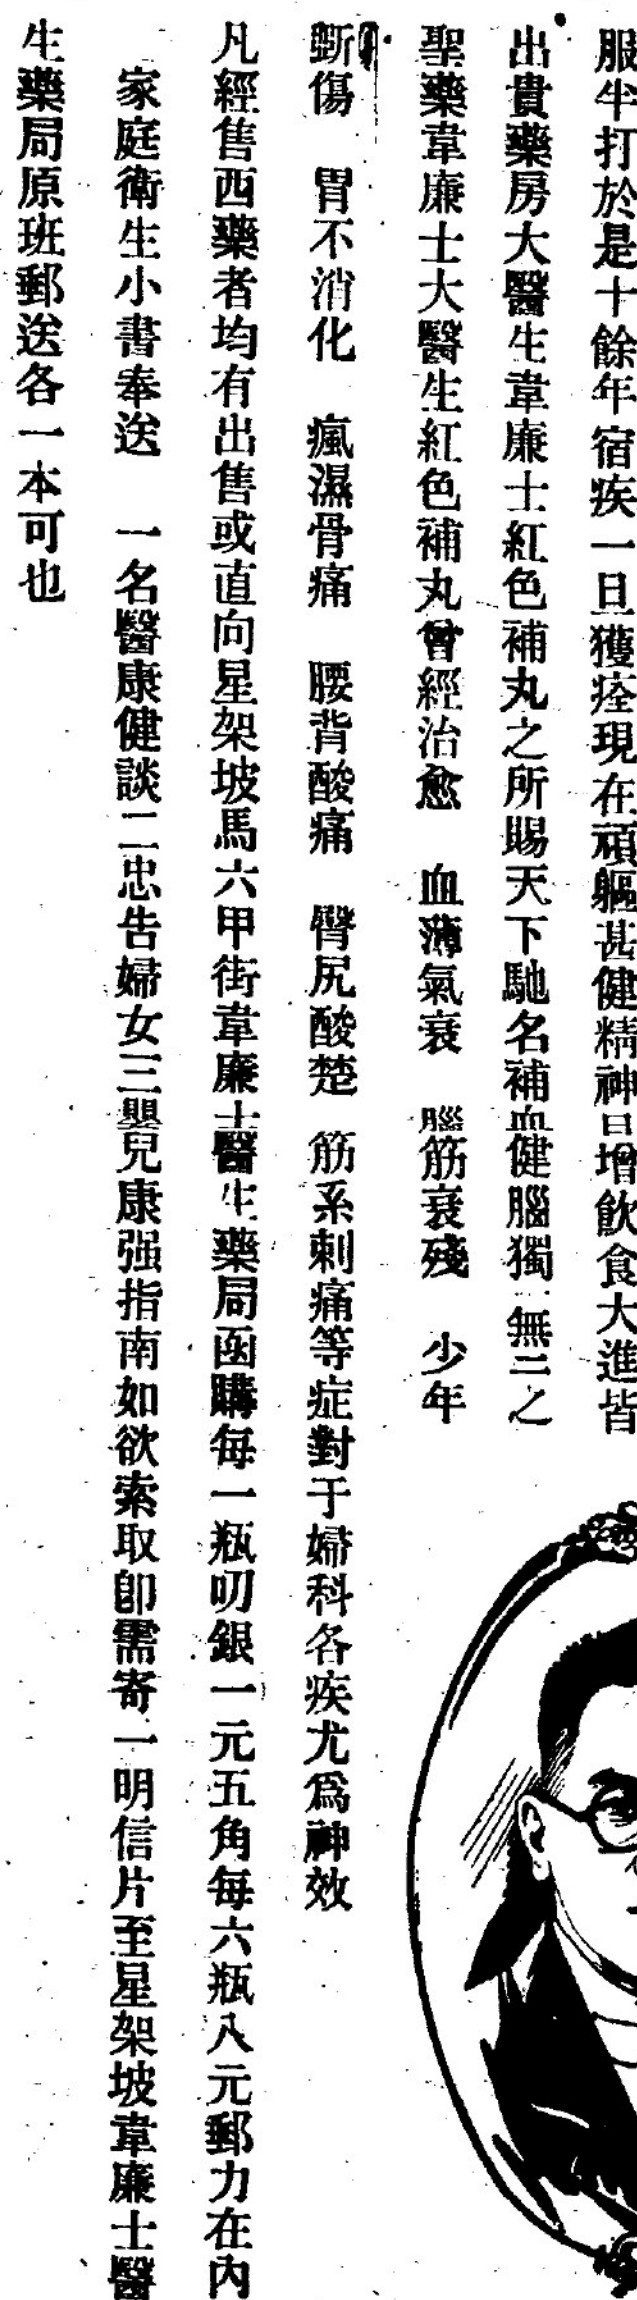 服半打於是十餘年宿疾一旦獲痊現在頑軀甚健精神日增飲食大進皆
出貴藥房大醫生韋廉士紅色補丸之所賜天下馳名補血健腦獨一無二之
聖藥韋廉士大醫生紅色補丸曾經治愈　血薄氣衰　腦筋衰殘　少年
斲傷　胃不消化　瘋濕骨痛　腰背酸痛　臀尻酸楚　筋系刺痛等症對于婦科各疾尤爲神效
凡經售西藥者均有出售或直向星架坡馬六甲街韋廉士醫生藥局函購每一瓶叨銀一元五角每六瓶八元郵力在內
家庭衛生小書奉送　一名醫康健談二忠告婦女三嬰兒康强指南如欲索取卽需寄一明信片至星架坡韋廉士醫
生藥局原班郵送各一本可也